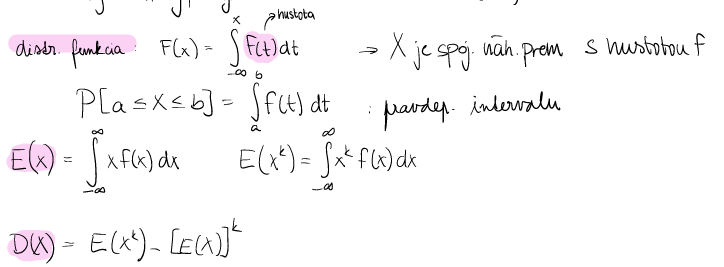 hustota
distr. funkcia : F(x) = ∫_{-∞}^{x} F(t) dt → X je spoj. náh. prem s hustotou f
P[a ≤ X ≤ b] = ∫_{a}^{b} f(t) dt : pravdep. intervalu
E(x) = ∫_{-∞}^{∞} x f(x) dx E(x^k) = ∫_{-∞}^{∞} x^k f(x) dx
D(X) = E(x^k) - [E(X)]^k